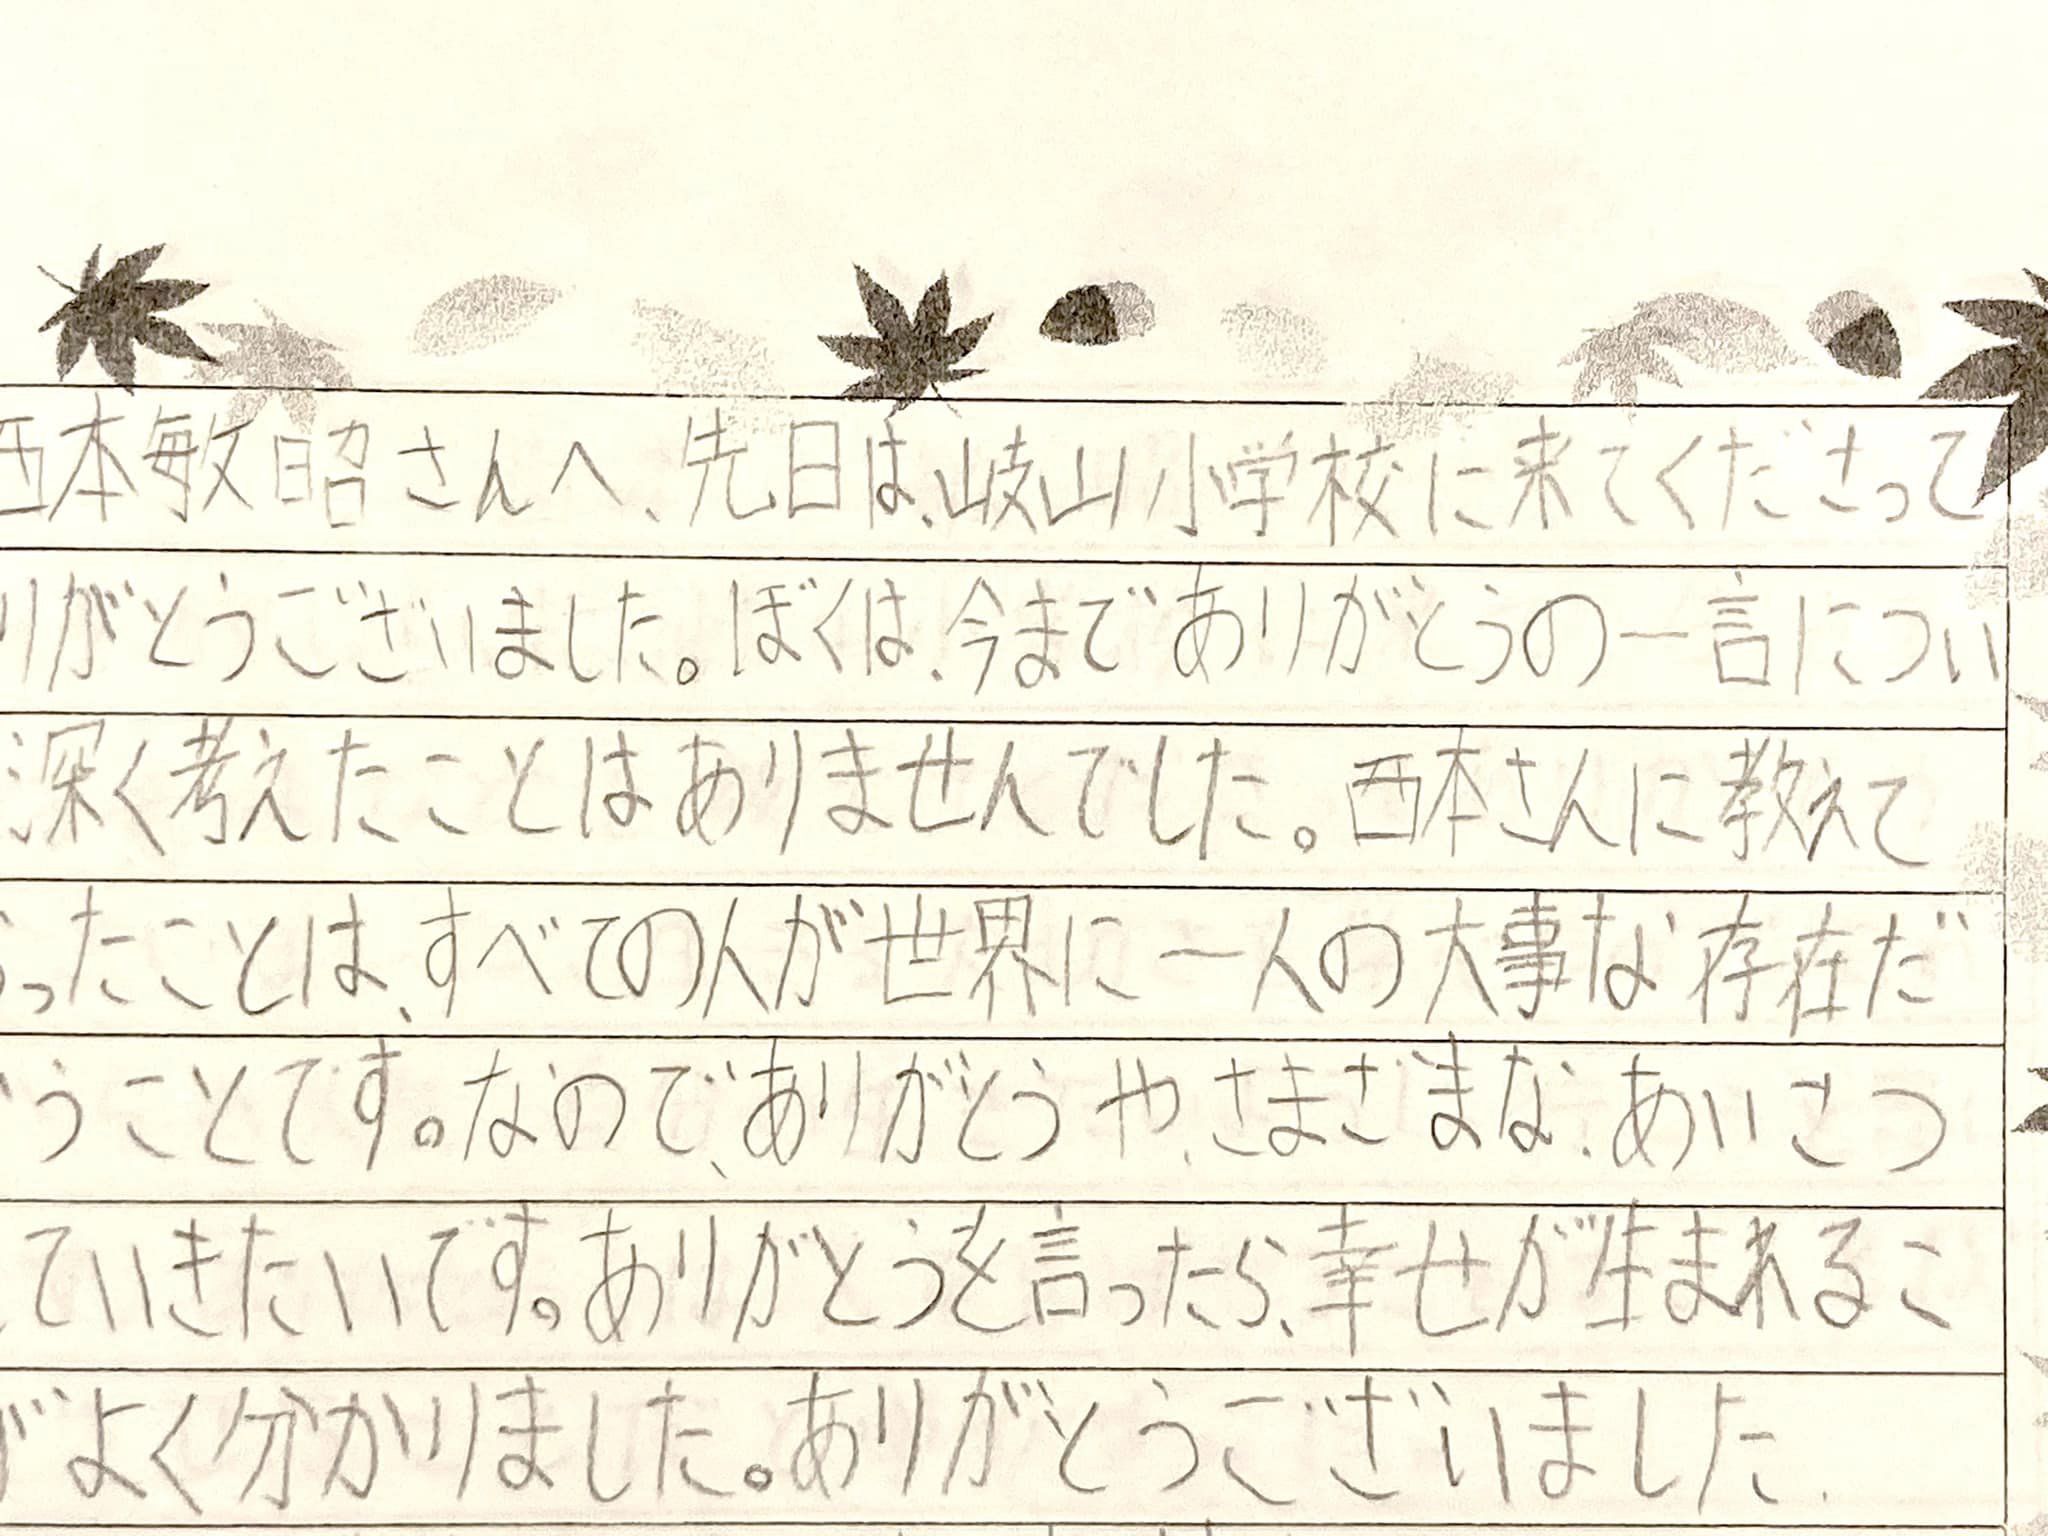 西本敏昭さんへ、先日は、岐山小学校に来てくださって
りがとうございました。ぼくは、今までありがとうの一言につい
深く考えたことはありませんでした。西本さんに教えて
らったことは、すべての人が世界に一人の大事な存在だ
うことです。なので、ありがとうや、さまざまな、あいさつ
ていきたいです。ありがとうを言ったら、幸せが生まれるこ
がよく分かりました。ありがとうございました.